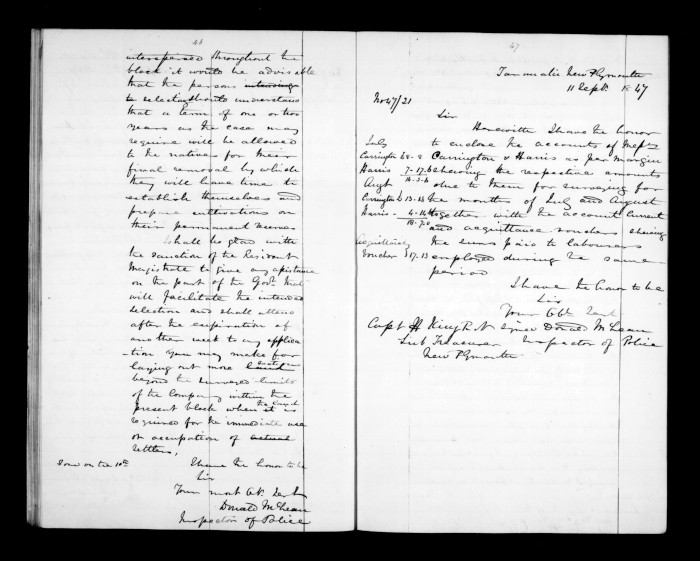 46
interspersed throughout the
block it would be advisable
that the persons intending
to select should understand
that a term of one or two
years as the case may
require will be allowed
to the natives for their
final removal by which
they will have time to
establish themselves and
prepare cultivations on
their permanent reserves
I shall be glad with
the sanction of the Resident
Magistrate to give any assistance
on the part of the Govt that
will facilitate the intended
selection and shall attend
after the expiration of
another week to any applica
-tion you may make for
laying out more
beyond the surveyed limits
of the Company within the
present block when the land is
required for the immediate use
or occupation of actual
settlers,
I have the honor to be
Sir
Your most Obt Servt
Donald McLean
Inspector of Police
47
Taranaki New Plymouth
11 Sept 1847
No 47/21
Sir
Herewith I have the honor
to enclose the accounts of Messrs
Carrington & Harris as per margin
shewing the respective amounts
due to them for surveying for
the months of July and August
together with the account current
and acquittance vouchers shewing
the sums paid to labourers
employed during the same
period
July
Carrington
Harris 7-17-6
Augt
Carrington
Harris
Acquittance
Voucher 17.13
I have the honor to be
Sir
Your Obt Servt
signed Donald McLean
Inspector of Police
Capt H King R.N
Sub Treasurer
New Plymouth